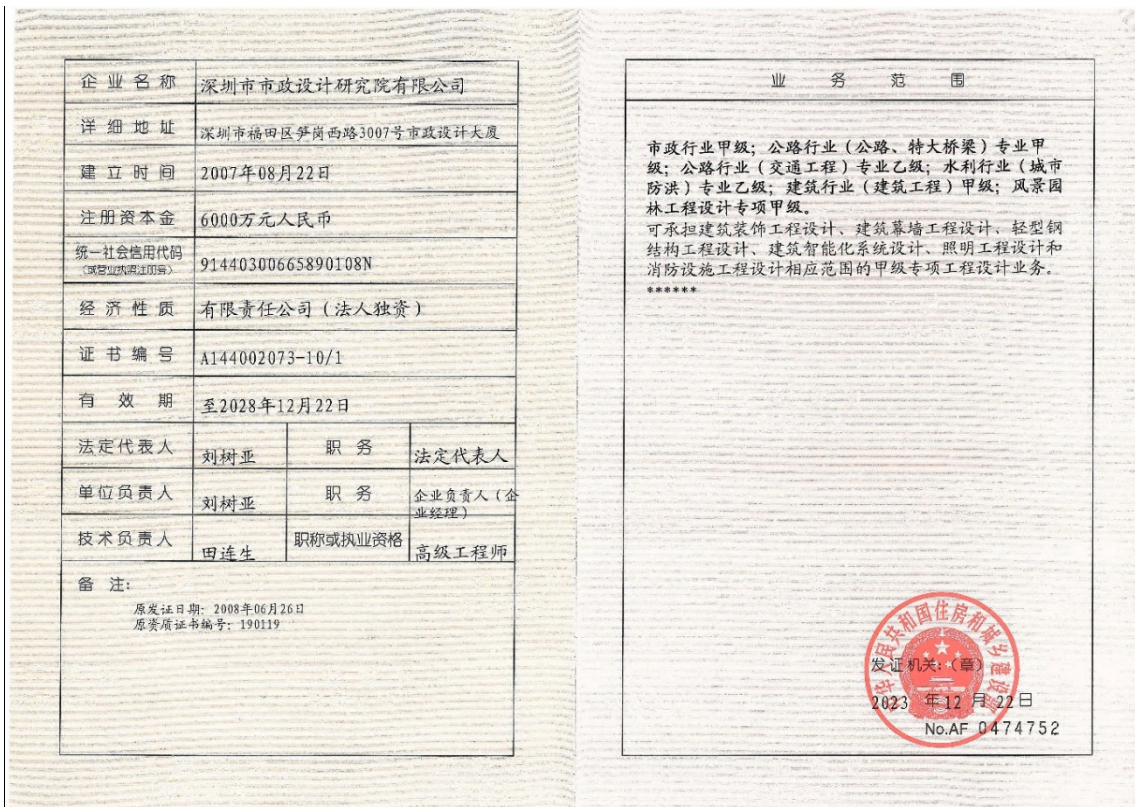 企业名称 深圳市市政设计研究院有限公司
详细地址 深圳市福田区笋岗西路3007号市政设计大厦
建立时间 2007年08月22日
注册资本金 6000万元人民币
统一社会信用代码
（或营业执照注册号） 91440300665890108N
经济性质 有限责任公司（法人独资）
证书编号 A144002073-10/1
有效期 至2028年12月22日
法定代表人 刘树亚 职务 法定代表人
单位负责人 刘树亚 职务 企业负责人（企
业经理）
技术负责人 田连生 职称或执业资格 高级工程师
备注:
原发证日期: 2008年06月26日
原资质证书编号: 190119
业务范围
市政行业甲级；公路行业（公路、特大桥梁）专业甲
级；公路行业（交通工程）专业乙级；水利行业（城市
防洪）专业乙级；建筑行业（建筑工程）甲级；风景园
林工程设计专项甲级。
可承担建筑装饰工程设计、建筑幕墙工程设计、轻型钢
结构工程设计、建筑智能化系统设计、照明工程设计和
消防设施工程设计相应范围的甲级专项工程设计业务。
******
中华人民共和国住房和城乡建设部
发证机关:（章）
2023 年 12 月 22日
No.AF 0474752